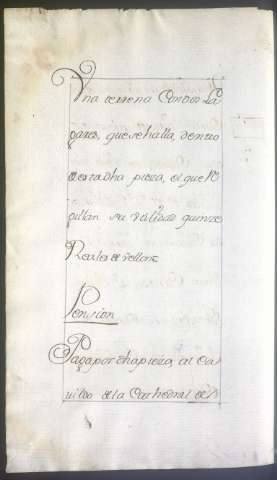 Vna terrena Con dos La
gares, que se halla dentro
de esta dha pieza, el que Re
pu tan su valor quinze
Reales de vellon
Pension
Paga por dha pieza, al Ca
uildo de la Cathedral de